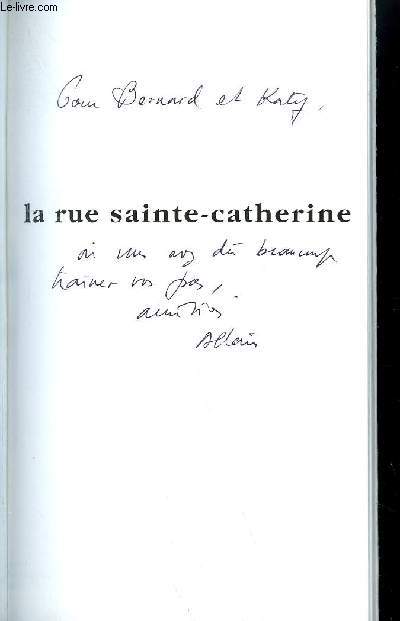 Le-livre.com
Pour Bernard et Katy,
la rue sainte-catherine
où vous avez dû beaucoup
traîner vos pas,
amitiés